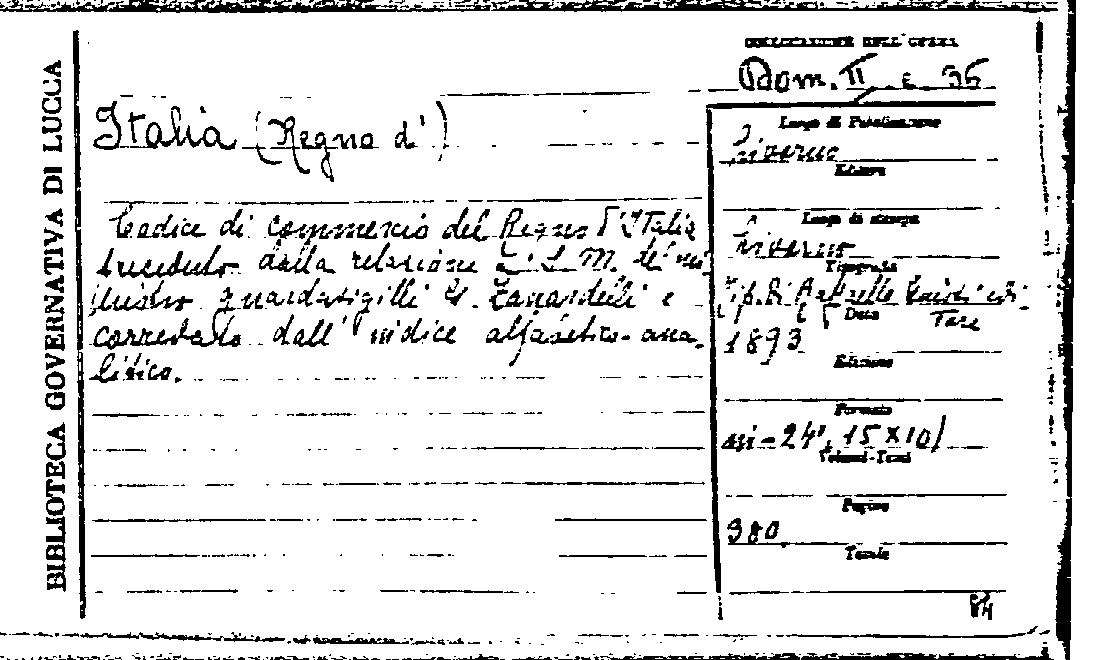 BIBLIOTECA GOVERNATIVA DI LUCCA
COLLOCAZIONE DELL'OPERA
Dom. II c. 36
Italia (Regno d')
Luogo di Pubblicazione
Livorno
Editore
Codice di commercio del Regno d'Italia
preceduto dalla relazione a S. M. del mi
nistro guardasigilli G. Zanardelli e
corredato dall'indice alfabetico-ana-
litico.
Luogo di stampa
Livorno
Tipografia
Tip. di Raffaello Giusti edi-
tore
Data
1893
Edizione
Formato
in-24°, 15X10
Volumi-Tomi
Pagine
380
Tavole
84